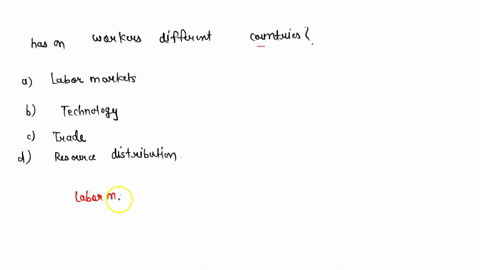 has on workers different countries?.
a) Labor markets
b) Technology
c) Trade
d) Resource distribution.
labor m.